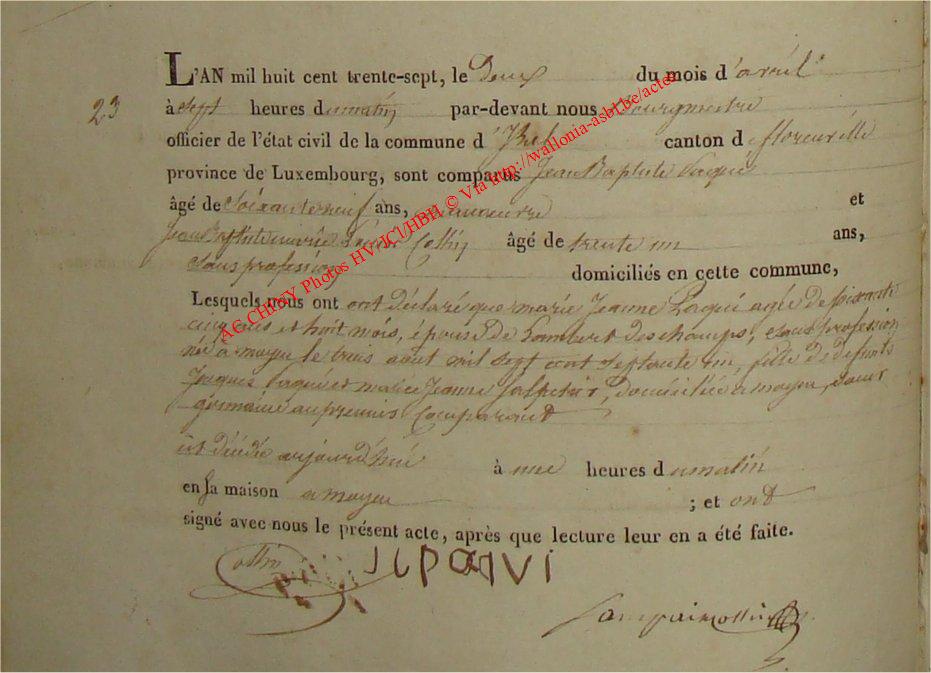 L'AN mil huit cent trente-sept, le Deux du mois d'avril
23
à sept heures dumatin par-devant nous Bourgmestre
officier de l'état civil de la commune d' canton de florenville
province de Luxembourg, sont comparus Jean Baptiste Paqué
âgé de Soixante neuf ans, manoeuvre et
Jean Baptiste marie Collin, âgé de trente un ans,
Sans profession domiciliés en cette commune,
Lesquels nous ont ont déclaré que marie Jeanne Paqué agée de soixante
cinq ans et huit mois, épouse de Lambert deschamps, Sans profession
née à moyen le trois aout mil sept cent septante un, fille de defunts
Jaques Paqué et marie Jeanne, domiciliée a moyen, soeur
germaine au premier Comparant
est décédée aujourd'hui à une heures dumatin
en sa maison a moyen ; et ont
signé avec nous le présent acte, après que lecture leur en a été faite.
Collin
AC CHINY Photos HV/JCL/HBH © Via http://wallonia-asbl.be/actes